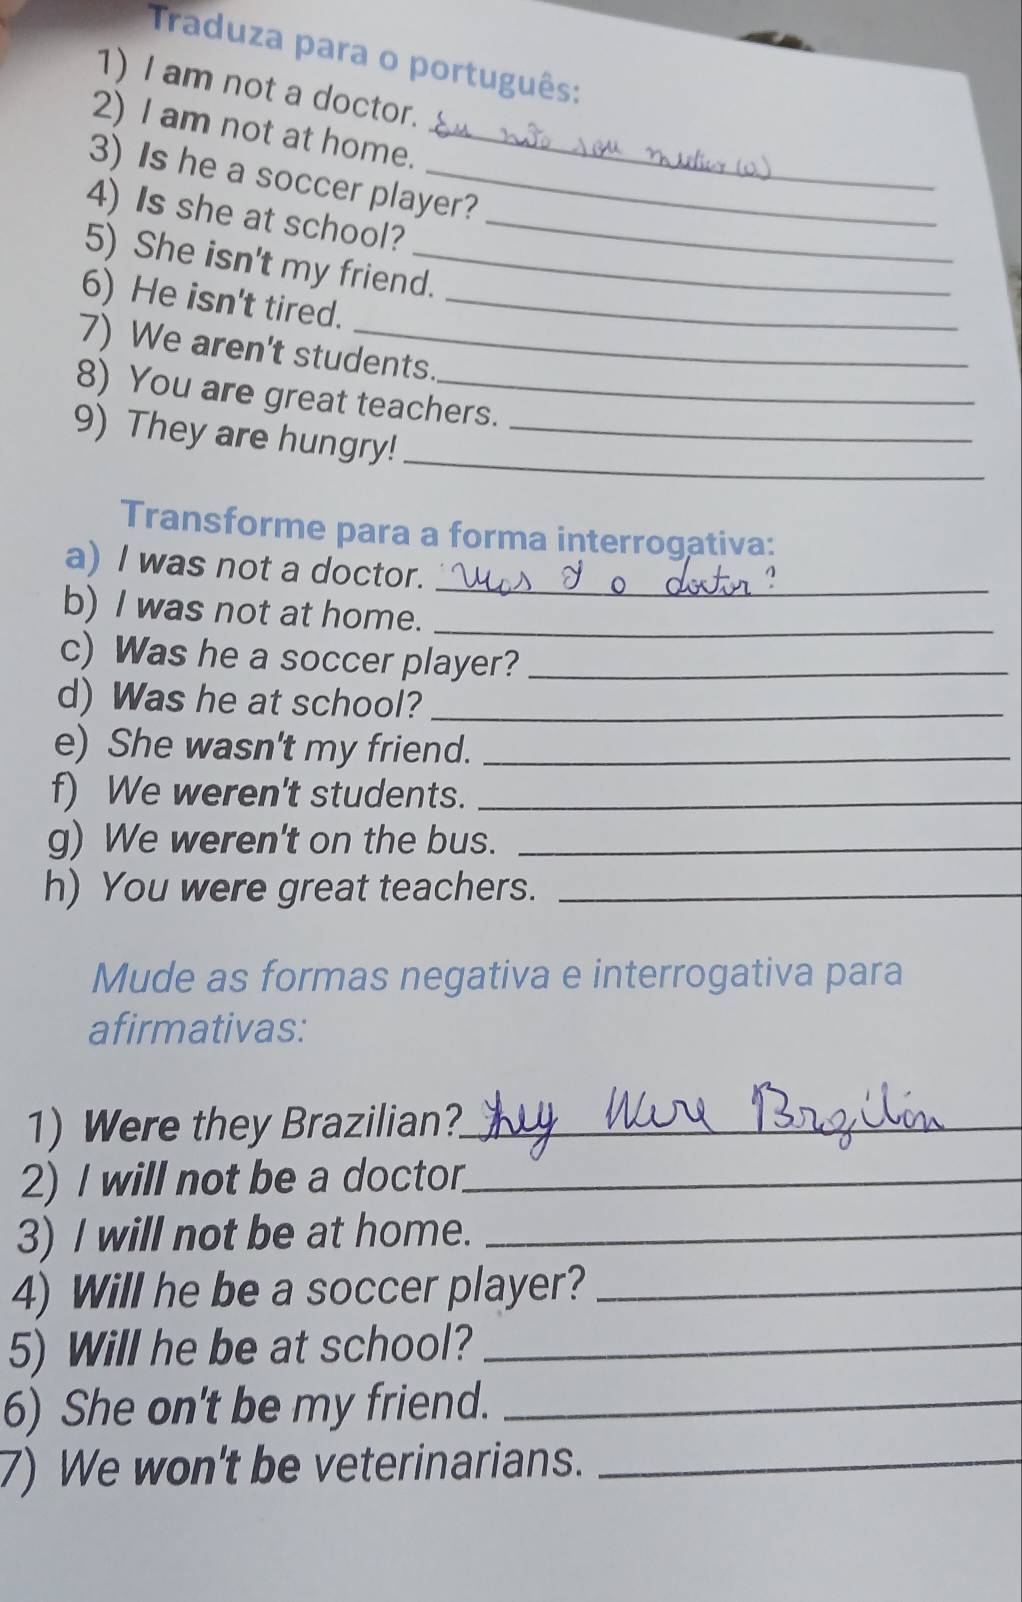 Traduza para o português:
1) I am not a doctor. Eu não sou médico (a)
2) I am not at home.
3) Is he a soccer player?
4) Is she at school?
5) She isn't my friend.
6) He isn't tired.
7) We aren't students.
8) You are great teachers.
9) They are hungry!
Transforme para a forma interrogativa:
a) I was not a doctor. Was I a doctor?
b) I was not at home.
c) Was he a soccer player?
d) Was he at school?
e) She wasn't my friend.
f) We weren't students.
g) We weren't on the bus.
h) You were great teachers.
Mude as formas negativa e interrogativa para
afirmativas:
1) Were they Brazilian? They Were Brazilian
2) I will not be a doctor
3) I will not be at home.
4) Will he be a soccer player?
5) Will he be at school?
6) She on't be my friend.
7) We won't be veterinarians.